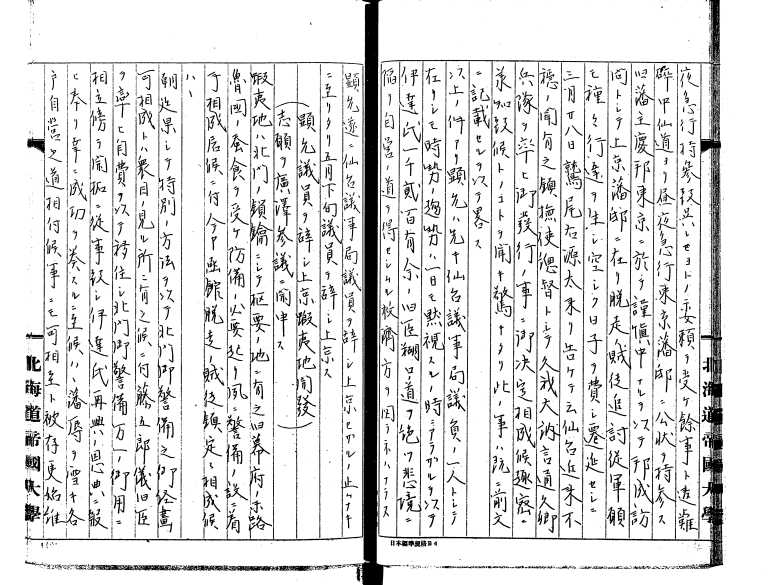 夜急行持参致呉レセヨトノ委頼ヲ受ケ餘事ト違ヒ難
辞中仙道ヨリ昼夜急行東京藩邸ニ公状ヲ持参ス
旧藩主慶邦東京ニ於テ謹慎中ナルヲ以テ邦成訪
問トシテ上京藩邸ニ在リ脱走ノ賊徒追討従軍願
モ種々行違ヲ生シ空シク日子ヲ費シ遷延セシニ
三月廿八日鷲尾右源太来リ告ケテ云仙台近来不
穏ノ聞有之鎮撫使総督トシテ久我大納言通久卿
兵隊ヲ率ヒ御発行ノ事ニ御決定相成候趣
承知致候トノコトヲ聞キ驚キタリ此ノ事ハ既ニ前文
ニ記載セルヲ以テ畧ス
以上ノ件アリ顕允ハ先キ仙台議事局議員ノ一人トシテ
在リシモ時勢ノ趨勢ハ一日モ黙視スルノ時ニアラサルヲ以テ
伊達氏一千貳百有余ノ旧臣糊口ノ道ヲ絶ツ悲境ニ
陥リ自営ノ道ヲ得セシムル救済方ヲ図ラネハナラス
顕允遂ニ仙台議事局議員ヲ辞シ上京セサルノ止ムナキ
ニ至リタリ五月下旬議員ヲ辞シ上京ス
(顕允議員ヲ辞シ上京蝦夷地開発
志願ヲ廣澤参議ニ開申ス)
蝦夷地ハ北門ノ鎖鑰ニシテ枢要ノ地ニ有之旧幕府ノ末路
魯国ノ蚕食ヲ受ケ防備ノ必要起リ夙ニ警備ノ設ニ有
之相成居候ニ付今般函館脱走ノ賊徒鎮定ニ相成候
ハヽ
朝廷果シテ特別ノ方法ヲ以テ北門御警備之御経畫
可相成トハ衆目ノ見ル所ニ有之候ニ付藤五郎儀旧臣
ヲ率ヒ自費ヲ以テ移住シ北門御警備万一ノ御用ニ
相立傍ラ開拓ニ従事致シ伊達氏再興ノ恩典ニ報
ヒ奉リ幸ニ成功ヲ奏スルニ至候ハヽ藩辱ヲ雪キ各
戸自営之道相付候事ニモ可相至ト被存更始維
北海道帝國大學
北海道帝國大學
日本標準規格B4